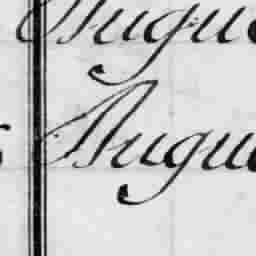 Augu
Augu